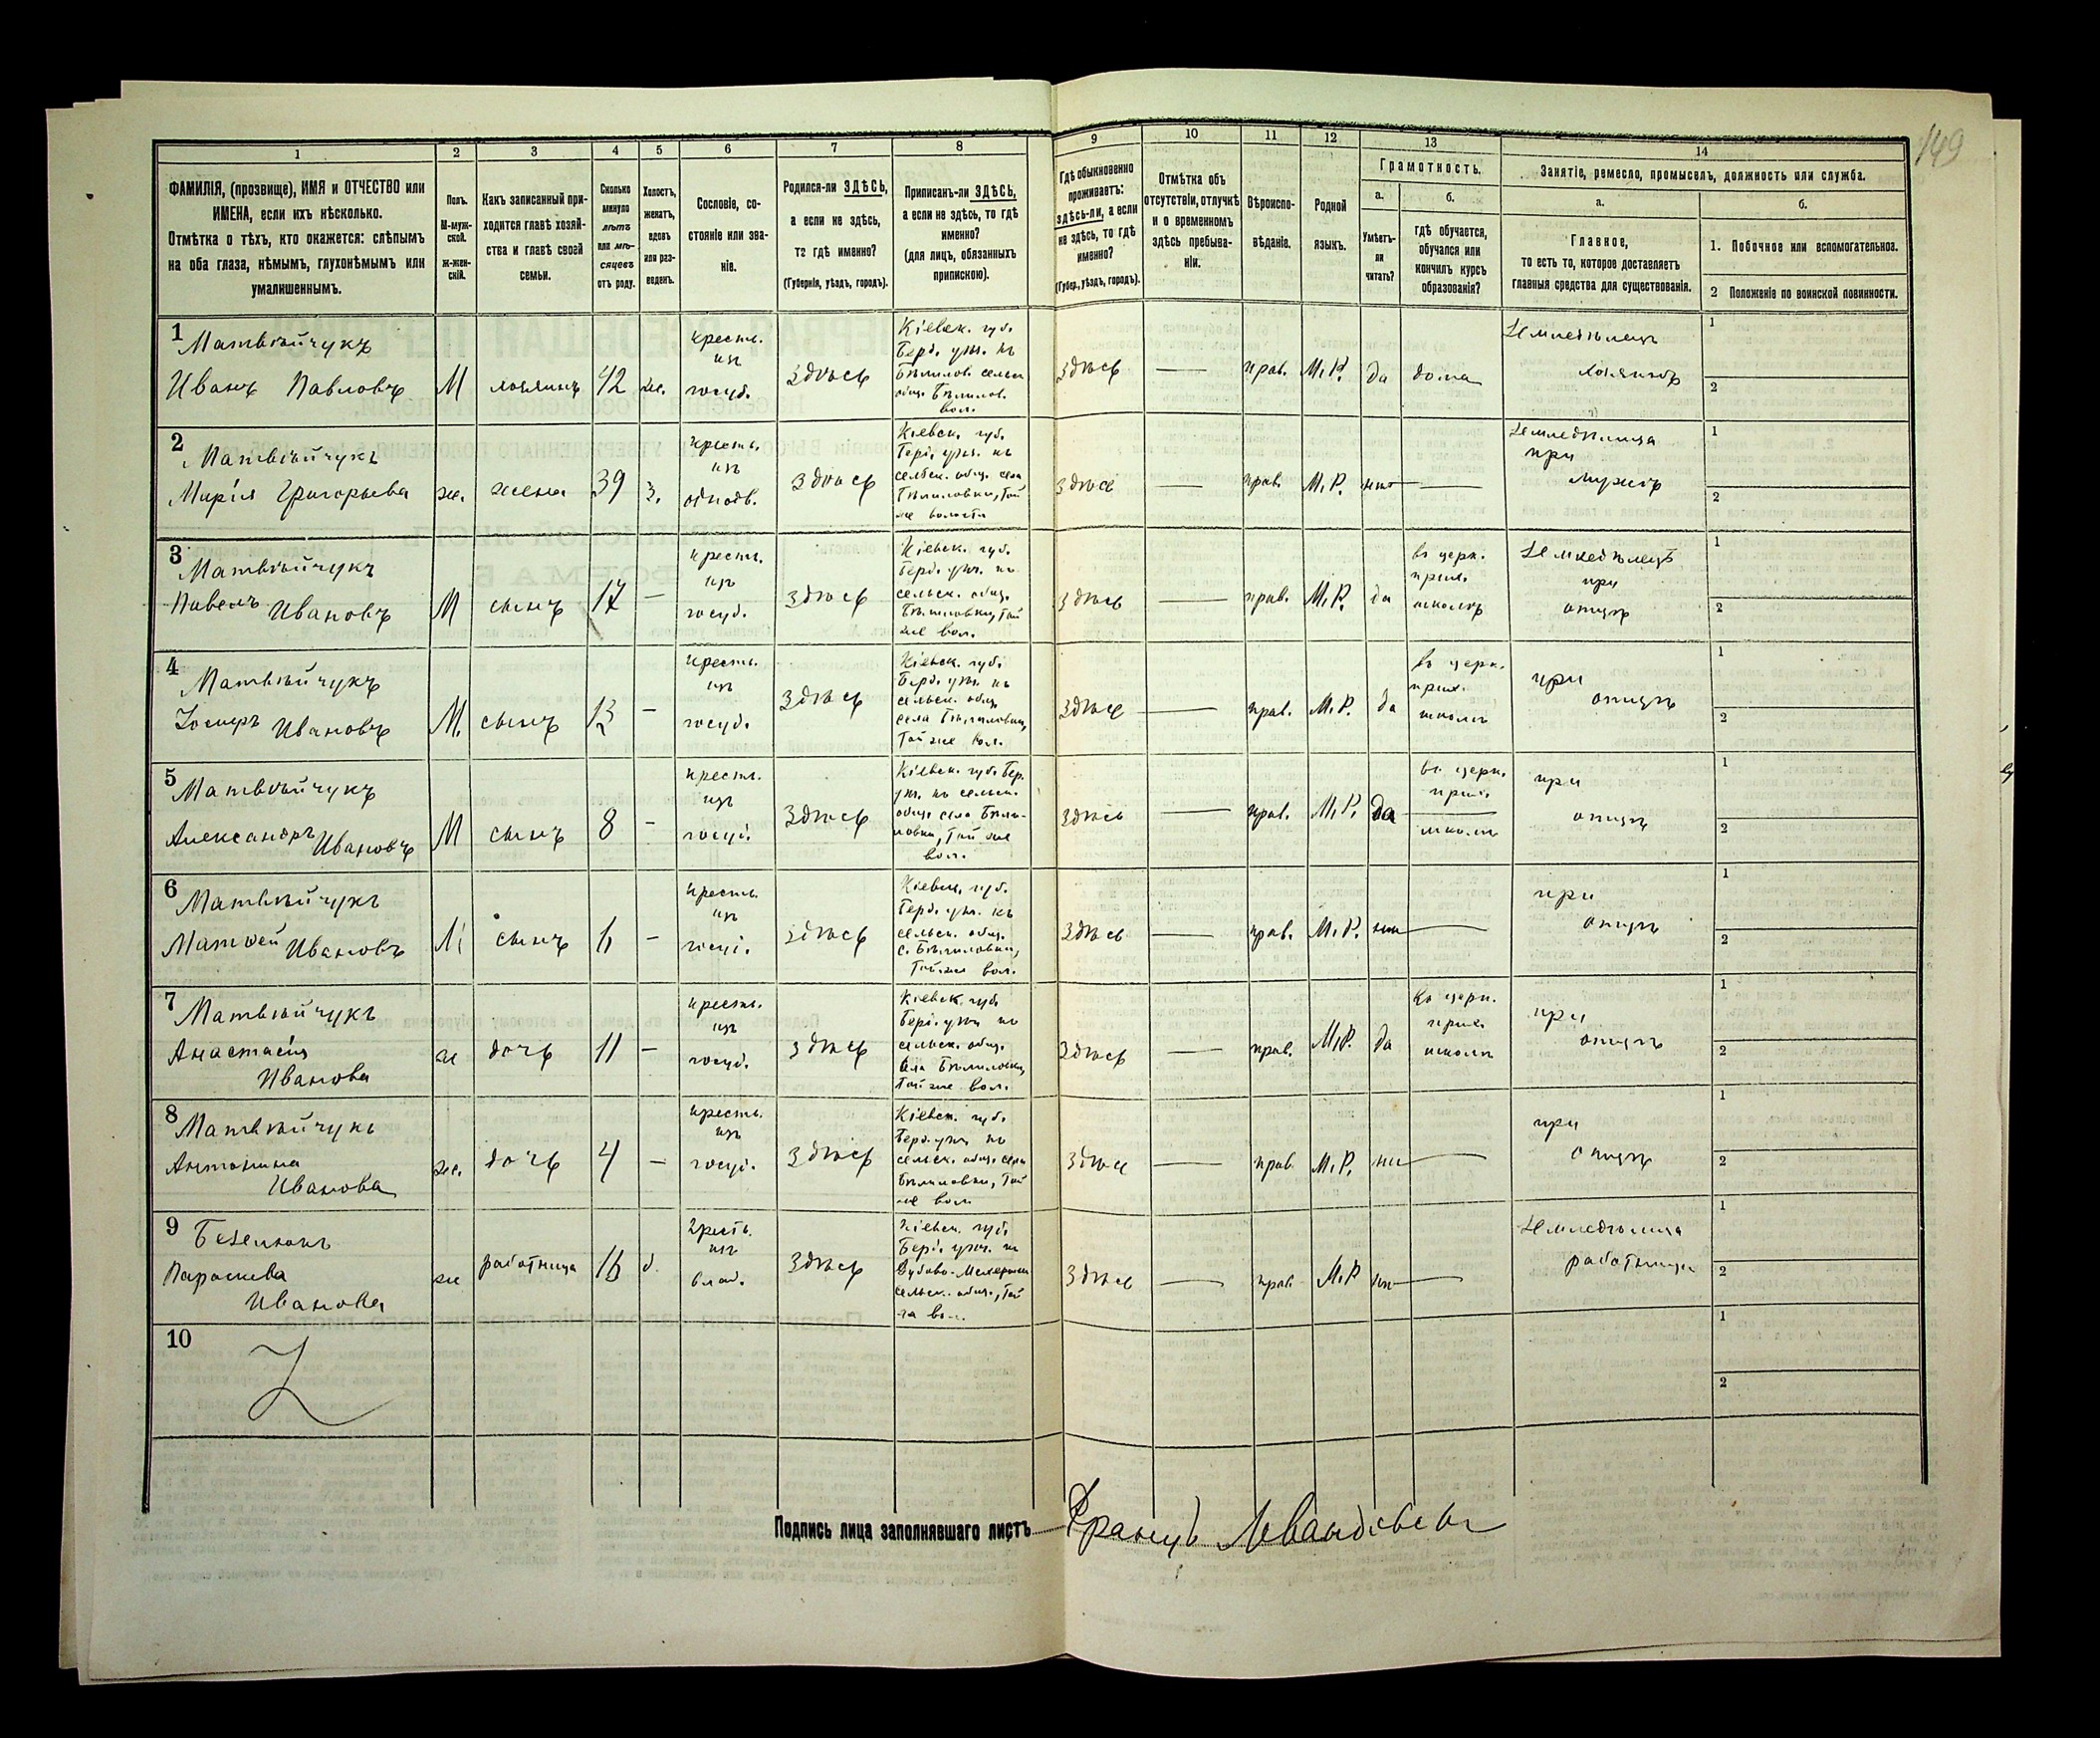 149
1
2
3
4
5
6
7
8
9
10
11
12
13
14
ФАМИЛІЯ, (прозвище), ИМЯ и ОТЧЕСТВО или
ИМЕНА, если ихъ нѣсколько.
Отмѣтка о тѣхъ, кто окажется: слѣпымъ
на оба глаза, нѣмымъ, глухонѣмымъ или
умалишеннымъ.
Полъ.
М-муж-
ской.
ж-жен-
скій.
Какъ записанный при-
ходится главѣ хозяй-
ства и главѣ своей
семьи.
Сколько
минуло
лѣтъ
или мѣ-
сяцевъ
отъ роду.
Холостъ,
женатъ,
вдовъ
или раз-
веденъ.
Сословіе, со-
стояніе или зва-
ніе.
Родился-ли ЗДѢСЬ,
а если не здѣсь,
то гдѣ именно?
(Губернія, уѣздъ, городъ).
Приписанъ-ли ЗДѢСЬ,
а если не здѣсь, то гдѣ
именно?
(для лицъ, обязанныхъ
припискою).
Гдѣ обыкновенно
проживаетъ:
здѣсь-ли, а если
не здѣсь, то гдѣ
именно?
(Губер., уѣздъ, городъ).
Отмѣтка объ
отсутствіи, отлучкѣ
и о временномъ
здѣсь пребыва-
ніи.
Вѣроиспо-
вѣданіе.
Родной
языкъ.
Грамотность.
а.
Умѣетъ-
ли
читать?
б.
гдѣ обучается,
обучался или
кончилъ курсъ
образованія?
Занятіе, ремесло, промыселъ, должность или служба.
а.
Главное,
то есть то, которое доставляетъ
главныя средства для существованія.
б.
1. Побочное или вспомогательное.
2 Положеніе по воинской повинности.
1 Матвѣйчукъ
Иванъ Павловъ
М
хозяинъ
42
же.
крестьь.
изъ
госуд.
здѣсь
Кіевск. губ.
Берд. уѣз. къ
Бѣлилов. сельск
общ. Бѣлилов.
вол.
здѣсь
—
прав.
М. Р.
да
дома
Земледѣлецъ
хозяинъ
1
2
2 Матвѣйчукъ
Марія Григорьева
же.
жена
39
з.
крестьь.
изъ
однодв.
здѣсь
Кіевск. губ.
Берд. уѣз. къ
сельск. общ. села
Бѣлиловки, той
же волости
здѣсь
—
прав.
М. Р.
нѣт
—
Земледѣлица
при
мужѣ
1
2
3 Матвѣйчукъ
Павелъ Ивановъ
М
сынъ
17
—
крестьь.
изъ
госуд.
здѣсь
Кіевск. губ.
Берд. уѣз. къ
сельск. общ.
Бѣлиловки, той
же вол.
здѣсь
—
прав.
М. Р.
да
въ церк.
прих.
школѣ
Земледѣлецъ
при
отцѣ
1
2
4 Матвѣйчукъ
Іосифъ Ивановъ
М.
сынъ
13
—
крестьь.
изъ
госуд.
здѣсь
Кіевск. губ.
Берд. уѣз. къ
сельск. общ.
села Бѣлиловки,
той же вол.
здѣсь
—
прав.
М. Р.
да
въ церк.
прих.
школѣ
при
отцѣ
1
2
5 Матвѣйчукъ
Александръ Ивановъ
М
сынъ
8
—
крестьь.
изъ
госуд.
здѣсь
Кіевск. губ. Бер.
уѣз. къ сельск.
общ. села Бѣли-
ловки, той же
вол.
здѣсь
—
прав.
М. Р.
да
въ церк.
прих.
школѣ
при
отцѣ
1
2
6 Матвѣйчукъ
Матвей Ивановъ
М
сынъ
6
—
крестьь.
изъ
госуд.
здѣсь
Кіевск. губ.
Берд. уѣз. къ
сельск. общ.
с. Бѣлиловки,
той же вол.
здѣсь
—
прав.
М. Р.
нѣт
—
при
отцѣ
1
2
7 Матвѣйчукъ
Анастасія
Иванова
же
дочь
11
—
крестьь.
изъ
госуд.
здѣсь
Кіевск. губ.
Берд. уѣз. къ
сельск. общ.
села Бѣлиловки,
той же вол.
здѣсь
—
прав.
М. Р.
да
въ церк.
прих.
школѣ
при
отцѣ
1
2
8 Матвѣйчукъ
Антонина
Иванова
же.
дочь
4
—
крестьь.
изъ
госуд.
здѣсь
Кіевск. губ.
Берд. уѣз. къ
сельск. общ. села
Бѣлиловки, той
же вол.
здѣсь
—
прав.
М. Р.
нѣт
—
при
отцѣ
1
2
9
Параскева
Иванова
же
работница
16
д.
крестьь.
изъ
влад.
здѣсь
Кіевск. губ.
Берд. уѣз. къ
сельск. общ., той
здѣсь
—
прав.
М. Р.
нѣт
—
Земледѣлица
работница
1
2
10
1
2
Подпись лица заполнявшаго листъ
Францъ Левандовскі